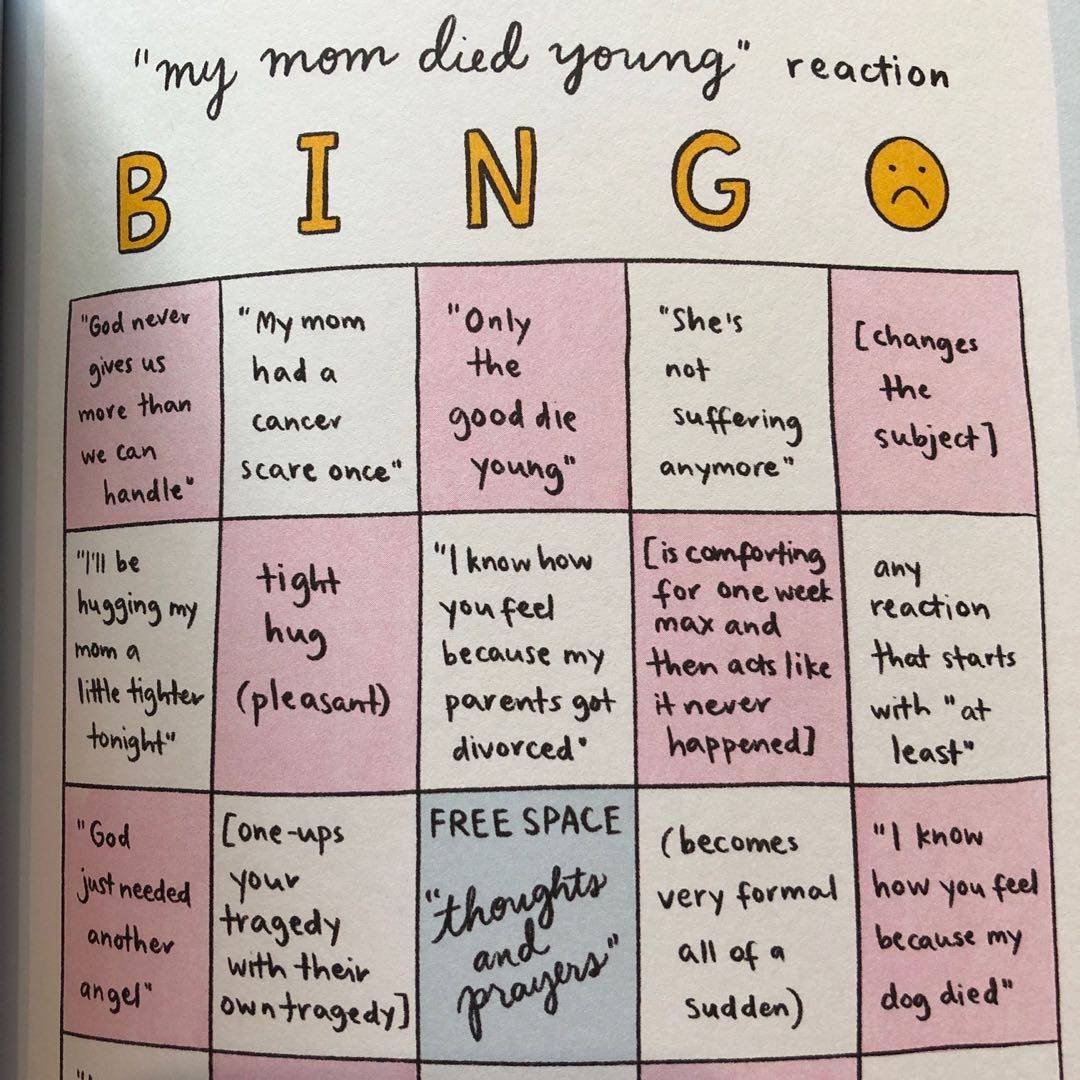 "my mom died young" reaction
B I N G
"God never
gives us
more than
we can
handle"
"My mom
had a
cancer
scare once"
"Only
the
good die
young"
"She's
not
suffering
anymore"
[changes
the
subject]
"I'll be
hugging my
mom a
little tighter
tonight"
tight
hug
(pleasant)
"I know how
you feel
because my
parents got
divorced"
[is comforting
for one week
max and
then acts like
it never
happened]
any
reaction
that starts
with "at
least"
"God
just needed
another
angel"
[one-ups
your
tragedy
with their
own tragedy]
FREE SPACE
"thoughts
and
prayers"
(becomes
very formal
all of a
sudden)
"I know
how you feel
because my
dog died"